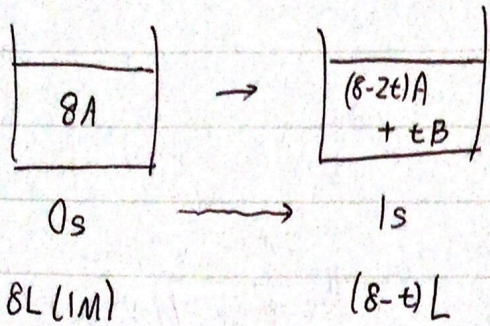 8A → (8-2t)A
+ tB
0s → 1s
8L (1M) (8-t) L